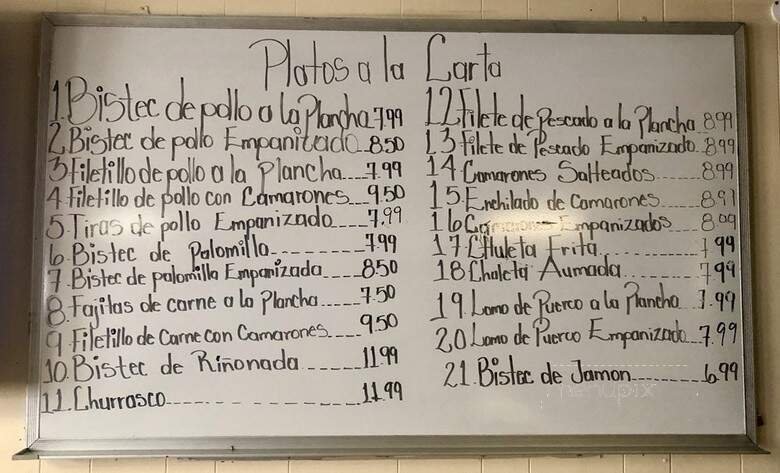 Platos a la Carta
1. Bistec de pollo a la Plancha 7.99
2. Bistec de pollo Empanizado 8.50
3 Filetillo de pollo a la Plancha 7.99
4. Filetillo de pollo con Camarones 9.50
5. Tiras de pollo Empanizado 7.99
6. Bistec de Palomilla 7.99
7. Bistec de palomilla Empanizada 8.50
8. Fajitas de carne a la Plancha 7.50
9. Filetillo de Carne con Camarones 9.50
10. Bistec de Riñonada 11.99
11. Churrasco 11.99
12. Filete de Pescado a la Plancha 8.99
13 Filete de Pescado Empanizado 8.99
14 Camarones Salteados 8.99
15. Enchilado de Camarones 8.91
16 Empanizados
17 Chuleta Frita 99
18 Chuleta Aumada 7.99
19. Lomo de Puerco a la Plancha 7.99
20 Lomo de Puerco Empanizado 7.99
21. Bistec de Jamon 6.99